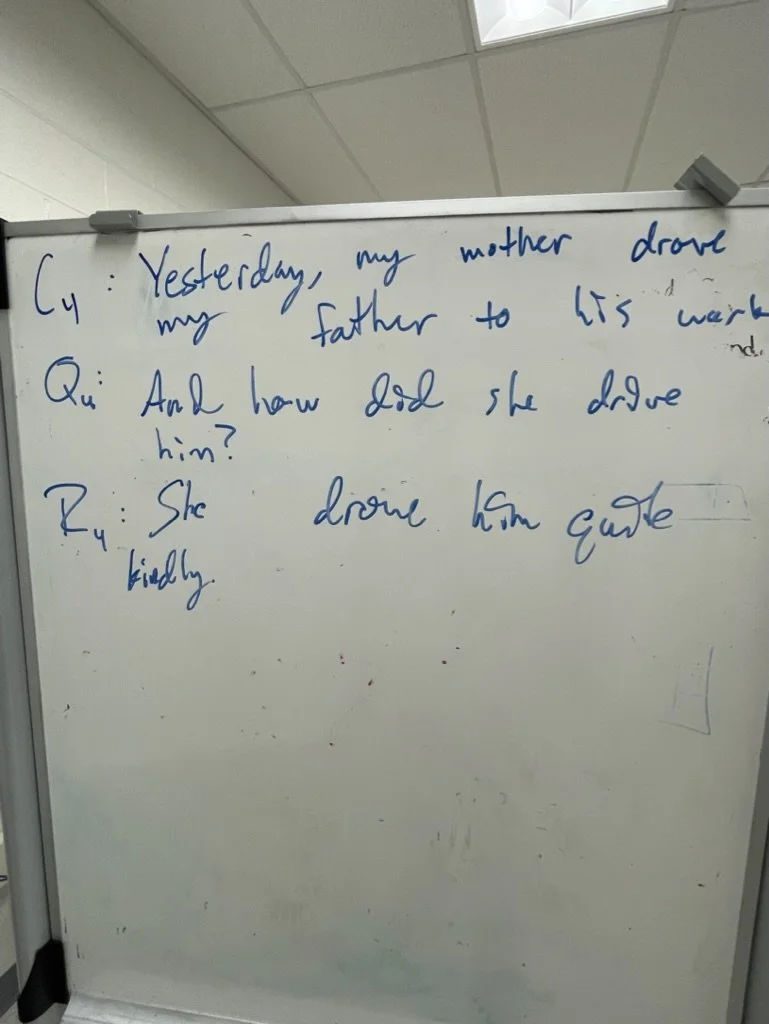 C4: Yesterday, my mother drove
my father to his work
Qu: And how did she drive
him?
R4: She drove him quite
kindly.